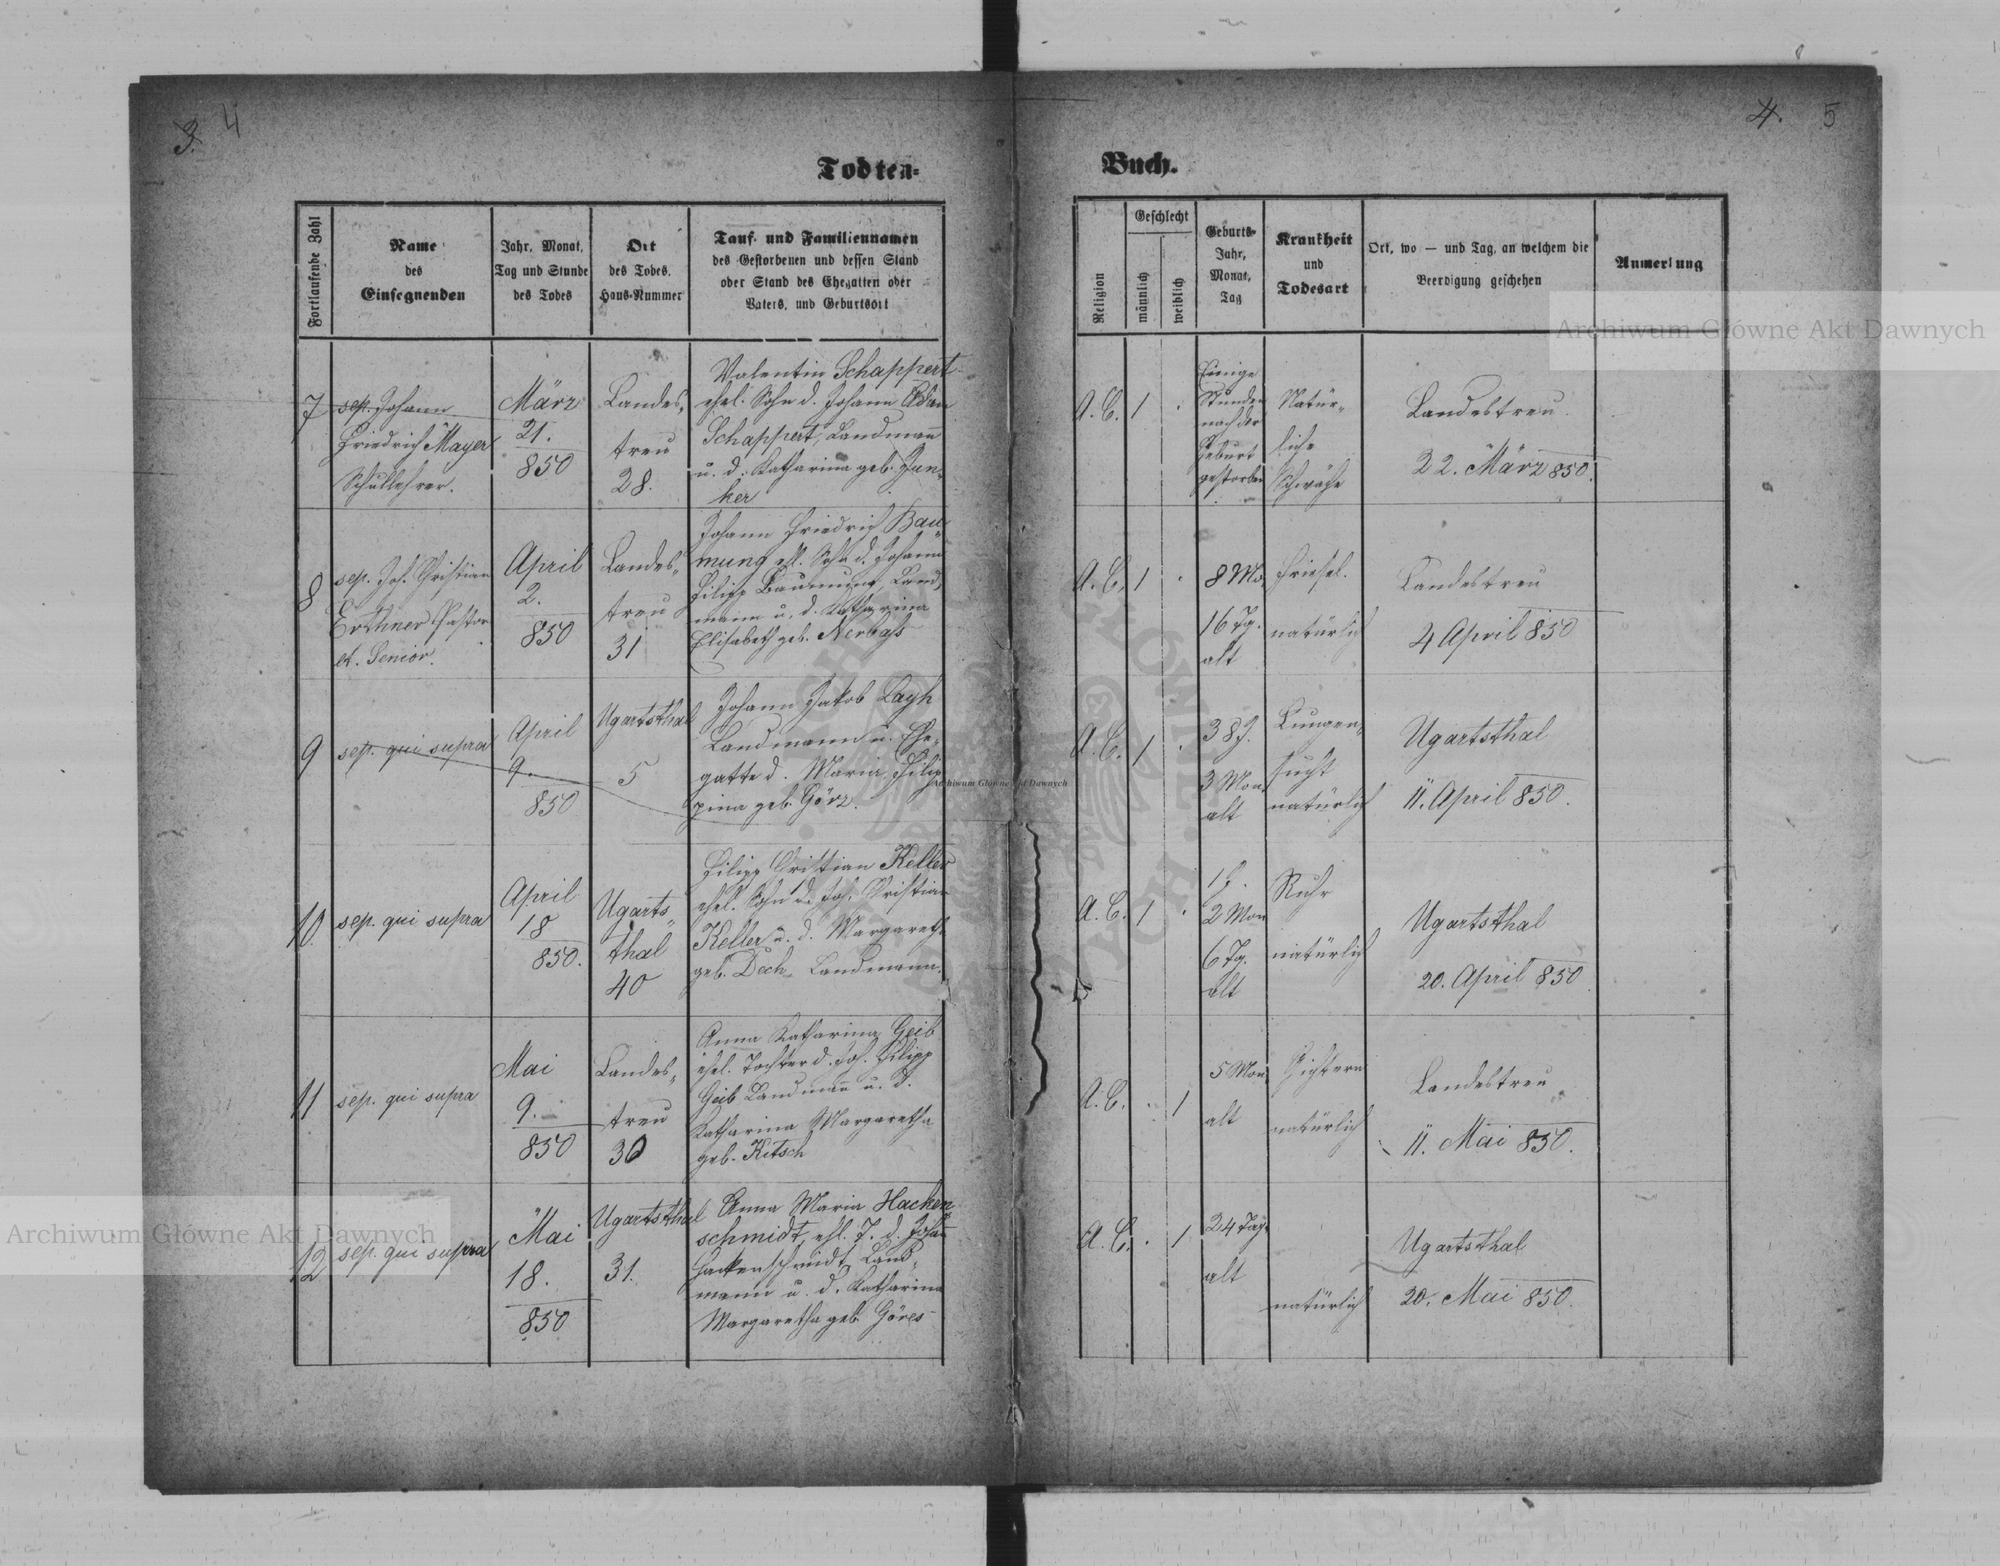 3. 4
4. 5
Todten-
Buch.
Fortlaufende Zahl
Name
des
Einsegnenden
Jahr, Monat,
Tag und Stunde
des Todes
Ort
des Todes,
Haus-Nummer
Tauf- und Familiennamen
des Gestorbenen und dessen Stand
oder Stand des Ehegatten oder
Vaters, und Geburtsort
Religion
Geschlecht
männlich
weiblich
Geburts-
Jahr,
Monat,
Tag
Krankheit
und
Todesart
Ort, wo — und Tag, an welchem die
Beerdigung geschehen
Anmerkung
7
sep. Johann
Friedrich Mayer
Schullehrer.
März
21.
850
Landes„
treu
28.
Valentin Schappert
ehel. Sohn d. Johann Adam
Schappert, Landmann
u. d. Katharina geb. Jun„
ker
A. C.
1
Einige
Stunden
nach der
Geburt
gestorben
Natür„
liche
Schwäche
Landestreu.
22. März 850.
8
sep. Joh. Christian
Erthner Pastor
et. Senior.
April
2.
850
Landes„
treu
31
Johann Friedrich Bau„
mung ehl. Sohn d. Johann
Filipp Baumung, Land„
mann u. d. Katharina
Elisabeth geb. Nerbaß
A. C.
1
8 Mo.
16 Tg.
alt
Friesel.
natürlich
Landestreu
4 April 850
9
sep. qui supra
April
9.
850
Ugartsthal
5
Johann Jakob Layh
Landmann u. Ehe„
gatte d. Maria Filip
pina geb. Görz.
A. C.
1
38 J.
3 Mon.
alt
Lungen„
sucht
natürlich
Ugartsthal
11. April 850.
10
sep. qui supra
April
18
850.
Ugarts„
thal
40
Filipp Christian Keller
ehel. Sohn d. Joh. Christian
Keller u. d. Margareth
geb. Dech, Landmann.
A. C.
1
1 J.
2 Mon
6 Tg.
alt
Ruhr
natürlich
Ugartsthal
20. April 850
11
sep. qui supra
Mai
9.
850
Landes„
treu
30
Anna Katharina Geib
ehel. Tochter d. Joh. Filipp
Geib Landmann u. d.
Katharina Margaretha
geb. Kitsch
A. C.
1
5 Mon.
alt
Gichtern
natürlich
Landestreu
11. Mai 850.
12
sep. qui supra
Mai
18.
850
Ugartsthal
31.
Anna Maria Hacken„
schmidt, ehl. T. d. Johann
Hackenschmidt Land„
mann u. d. Katharina
Margaretha geb. Göres
A. C.
1
24 Tage
alt
natürlich
Ugartsthal
20. Mai 850.
Archiwum Główne Akt Dawnych
Archiwum Główne Akt Dawnych
Archiwum Główne Akt Dawnych